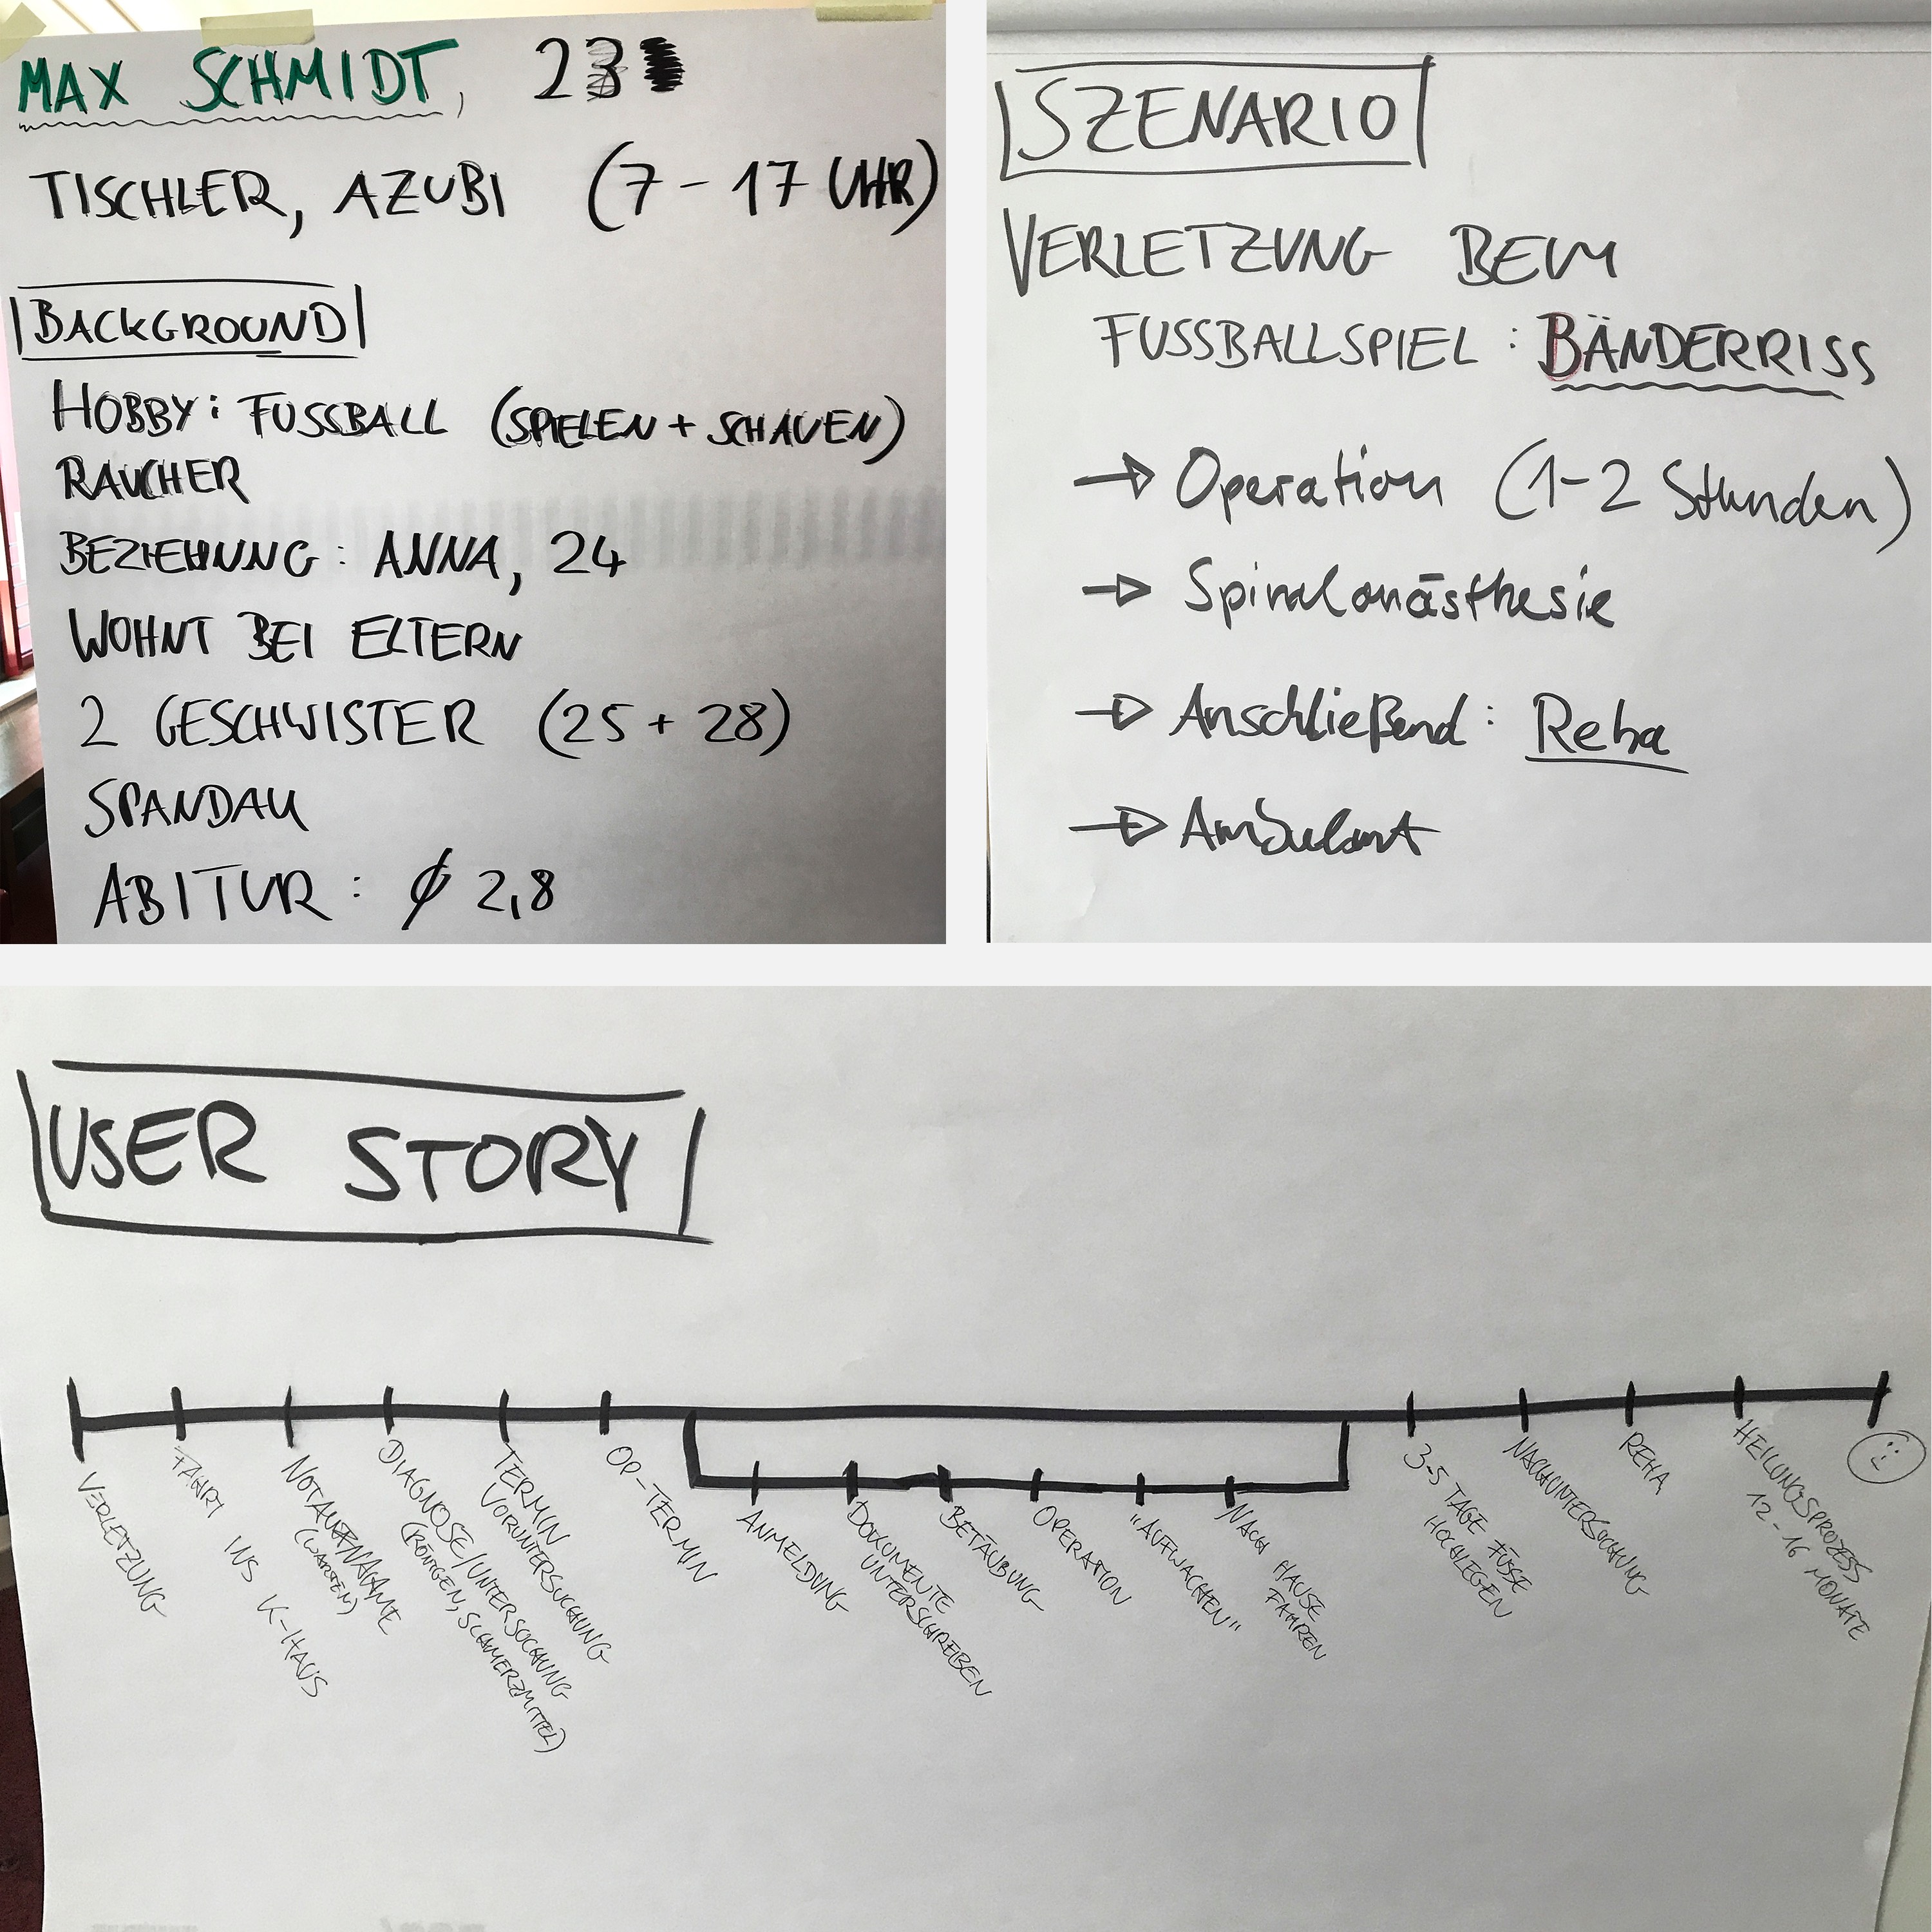 MAX SCHMIDT, 23
TISCHLER, AZUBI (7 - 17 UHR)
BACKGROUND
HOBBY: FUSSBALL (SPIELEN + SCHAUEN)
RAUCHER
BEZIEHUNG: ANNA, 24
WOHNT BEI ELTERN
2 GESCHWISTER (25 + 28)
SPANDAU
ABITUR: Ø 2,8
SZENARIO
VERLETZUNG BEIM
FUSSBALLSPIEL: BÄNDERRISS
→ Operation (1-2 Stunden)
→ Spinalanästhesie
→ Anschließend: Reha
→ Ambulant
USER STORY
VERLETZUNG
FAHRT INS K-HAUS
NOTAUFNAHME
(WARTEN)
DIAGNOSE/UNTERSUCHUNG
(RÖNTGEN, SCHMERZMITTEL)
TERMIN
VORUNTERSUCHUNG
OP-TERMIN
ANMELDUNG
DOKUMENTE
UNTERSCHREIBEN
BETÄUBUNG
OPERATION
"AUFWACHEN"
NACH HAUSE
FAHREN
3-5 TAGE FÜSSE
HOCHLEGEN
NACHUNTERSUCHUNG
REHA
HEILUNGSPROZESS
12-16 MONATE